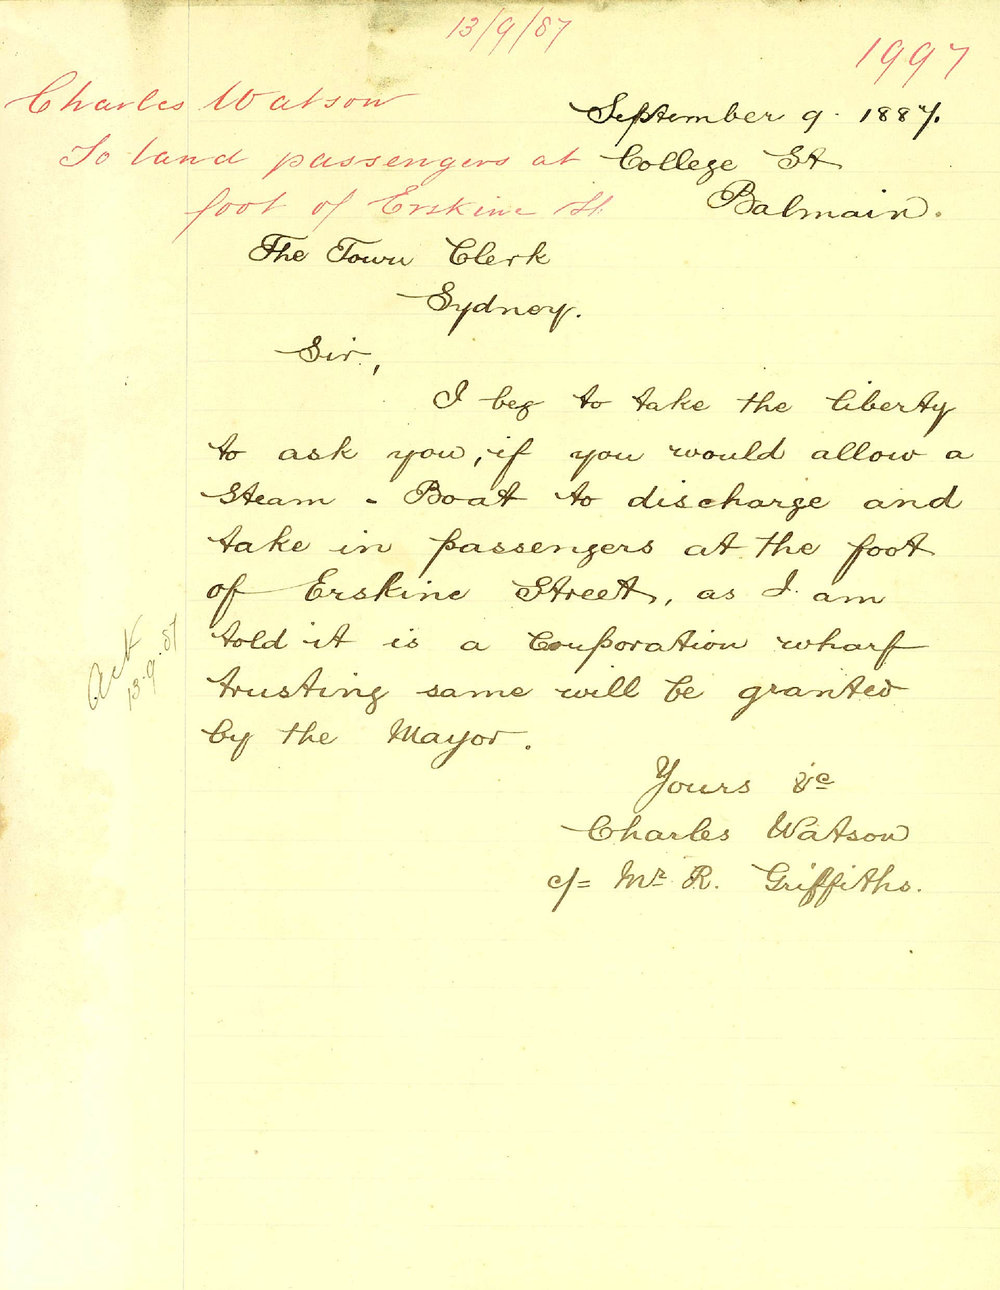 13/9/87
1997
Charles Watson
To land passengers at
foot of Erskine St
September 9. 1887.
College St
Balmain.
The Town Clerk
Sydney.
Sir,
I beg to take the liberty
to ask you, if you would allow a
Steam - Boat to discharge and
take in passengers at the foot
of Erskine Street, as I am
told it is a Corporation wharf
trusting same will be granted
by the Mayor.
Yours &c
Charles Watson
c/= Mr R. Griffiths.
Ack
13.9.87